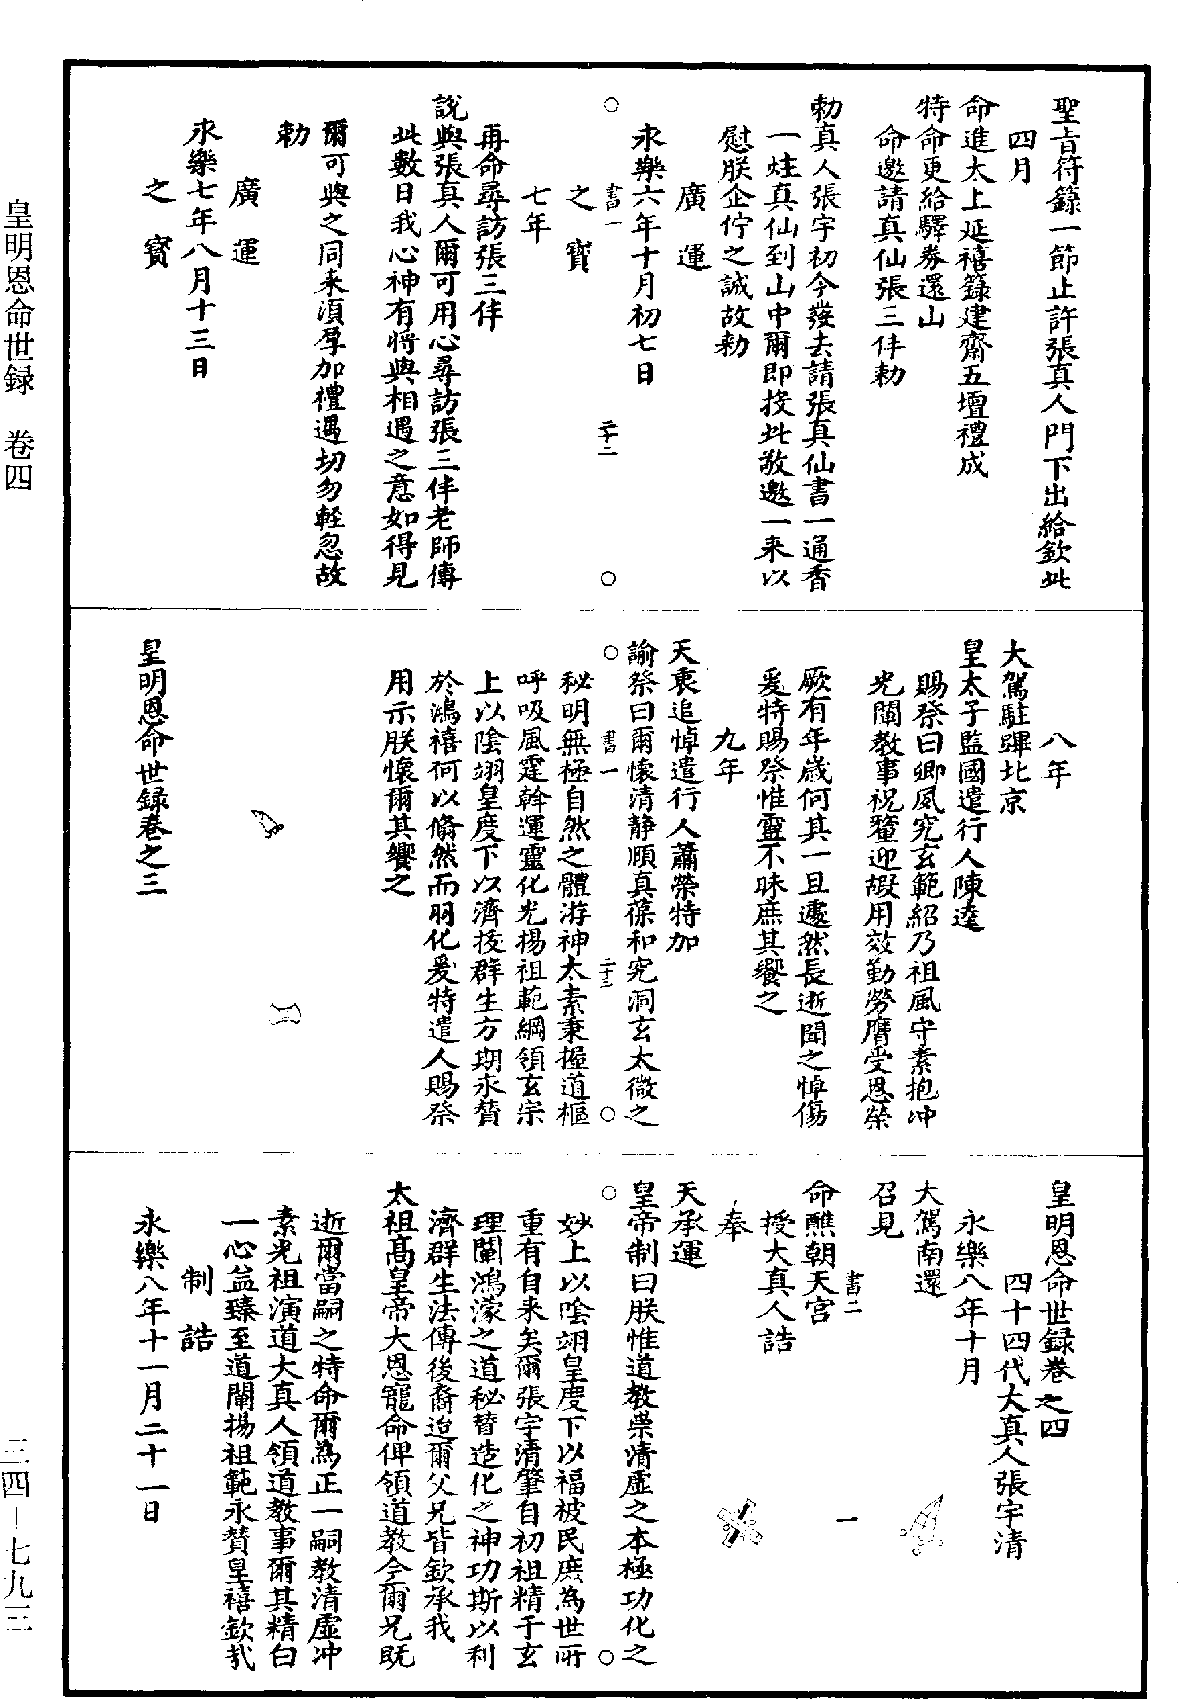 聖旨符籙一節止許張真人門下出給欽此
四月
命進太上延禧籙建齋五壇禮成
特命更給驛券還山
命邀請真仙張三仹勅
勅真人張宇初今發去請張真仙書一通香
一炷真仙到山中爾即投此敬邀一来以
慰朕企佇之誠故勅
廣運
永樂六年十月初七日
○ 書一 二十二 ○
之寶
七年
再命尋訪張三仹
說與張真人爾可用心尋訪張三仹老師傳
此數日我心神有將與相遇之意如得見
爾可與之同来須厚加禮遇切勿輕忽故
勅
廣運
永樂七年八月十三日
之寶
八年
大駕駐蹕北京
皇太子監國遣行人陳逵
賜祭曰卿夙究玄範紹乃祖風守素抱冲
光闡教事祝釐迎嘏用效勤勞膺受恩榮
厥有年歲何其一旦遽然長逝聞之悼傷
爰特賜祭惟靈不昧庶其饗之
九年
天衷追悼遣行人蕭榮特加
諭祭曰爾懷清静頤真葆和究洞玄太微之
○ 書一 二十三 ○
秘明無極自然之體游神太素秉握道樞
呼吸風霆斡運靈化光揚祖範綱領玄宗
上以陰翊皇度下以濟拔群生方期永贊
於鴻禧何以翛然而羽化爰特遣人賜祭
用示朕懷爾其饗之
皇明恩命世録卷之三
皇明恩命世録卷之四
四十四代大真人張宇清
永樂八年十月
大駕南還
召見
書二 一
命醮朝天宮
授大真人誥
奉
天承運
皇帝制曰朕惟道教崇清虛之本極功化之
○ ○
妙上以陰翊皇度下以福被民庶為世所
重有自来矣爾張宇清肇自初祖精于玄
理闡鴻濛之道秘替造化之神功斯以利
濟群生法傳後裔迨爾父兄皆欽承我
太祖高皇帝大恩寵命俾領道教今爾兄既
逝爾當嗣之特命爾為正一嗣教清虛冲
素光祖演道大真人領道教事爾其精白
一心益臻至道闡揚祖範永贊皇禧欽哉
制誥
永樂八年十一月二十一日
皇明恩命世録 卷四
三四—七九三